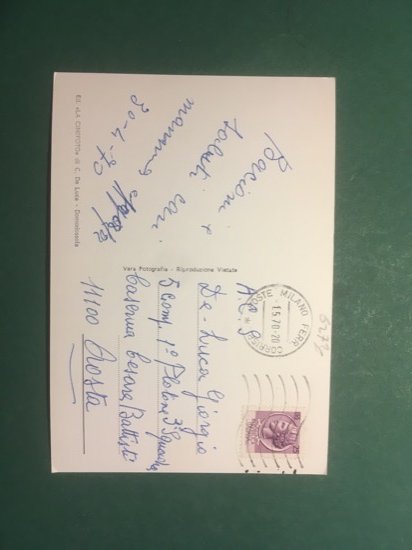 Ed. «LA CINEFOTO» di C. De Luca - Domodossola
Bacioni e
saluti cari
mamma e
30-4-70
Vera Fotografia - Riproduzione Vietata
POSTE MILANO FERR.
CORRISP
1.5.70-20
De-Luca Giorgio
5 comp. 1° Plotone 3ª Squadra
Caserma Cesare Battisti
11100 Aosta